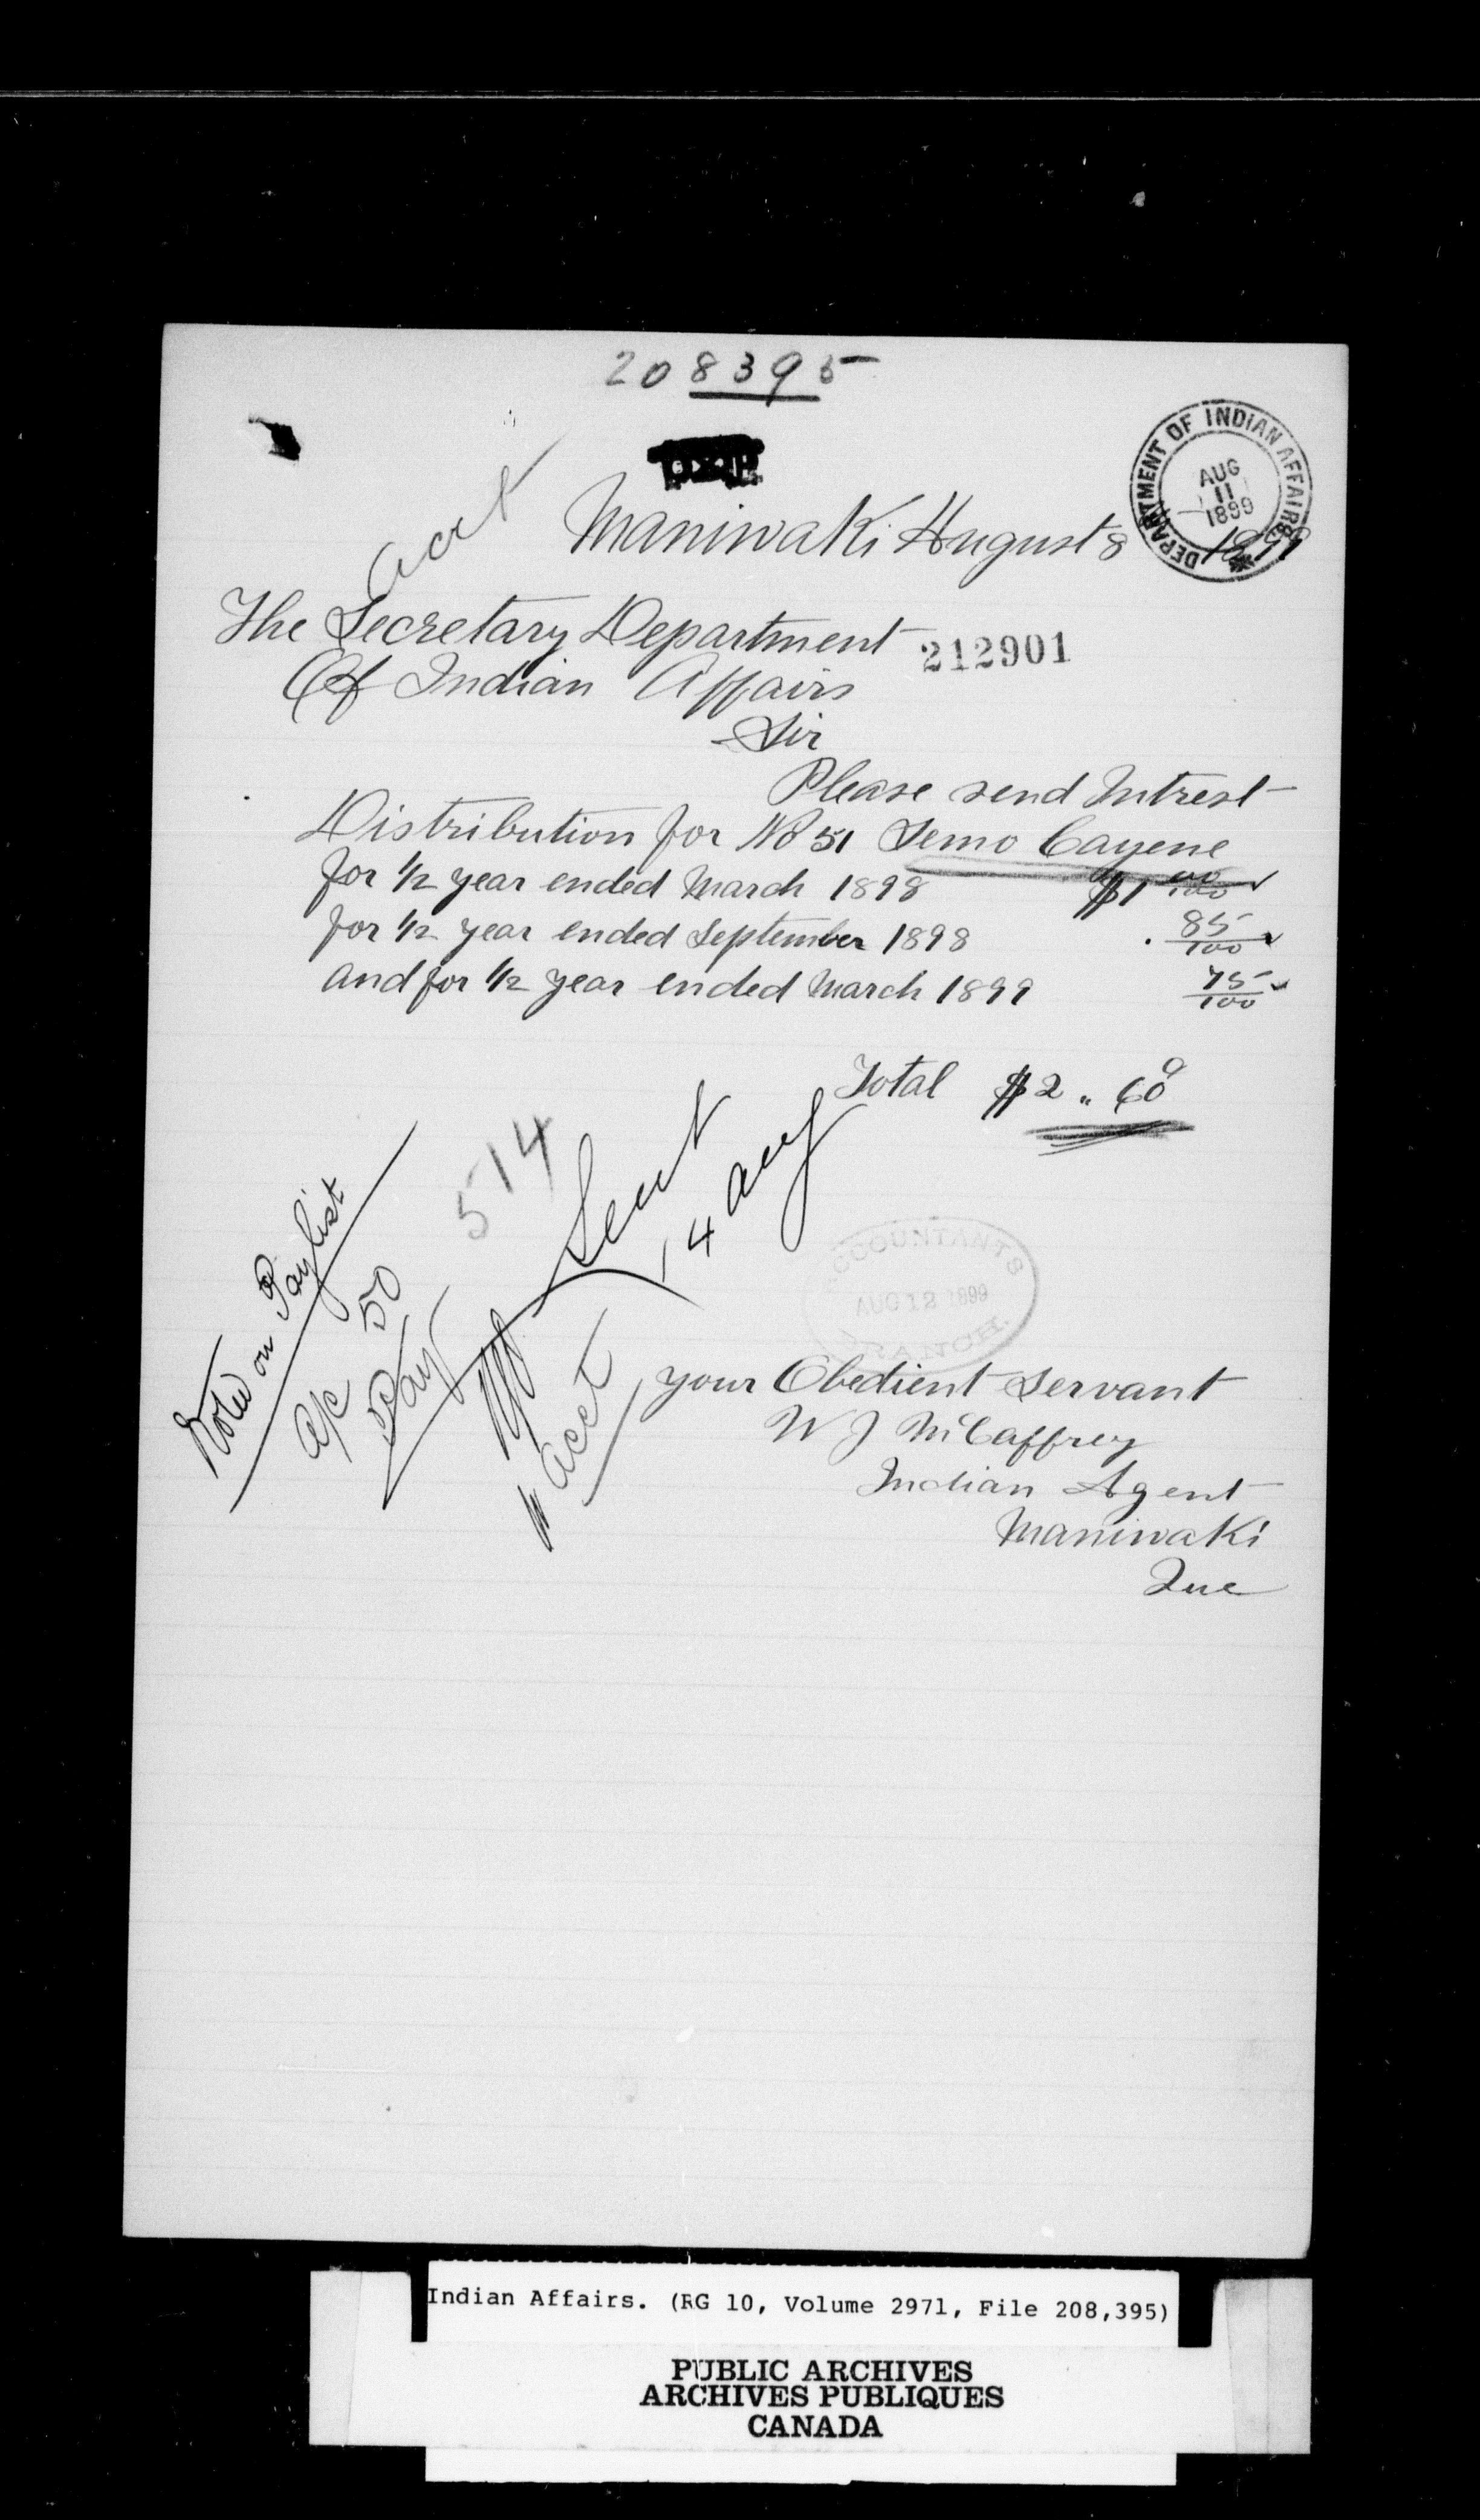 208395
DEPARTMENT OF INDIAN AFFAIRS
AUG
11
1899
Acct
Maniwaki August 8 1899
The Secretary Department
212901
Of Indian Affairs
Sir
Please send Intrest
Distribution for No 51 Semo Cayene
for 1/2 year ended March 1898 $1 00/100
for 1/2 year ended September 1898 . 85/100
and for 1/2 year ended March 1899 75/100
Total $2 " 60
514
Sent
14 Aug
Noted on Paylist
a/c 50
Pay
Acct
ACCOUNTANT'S
AUG 12 1899
BRANCH.
your Obedient Servant
W J McCaffrey
Indian Agent
Maniwaki
Que
Indian Affairs. (RG 10, Volume 2971, File 208,395)
PUBLIC ARCHIVES
ARCHIVES PUBLIQUES
CANADA